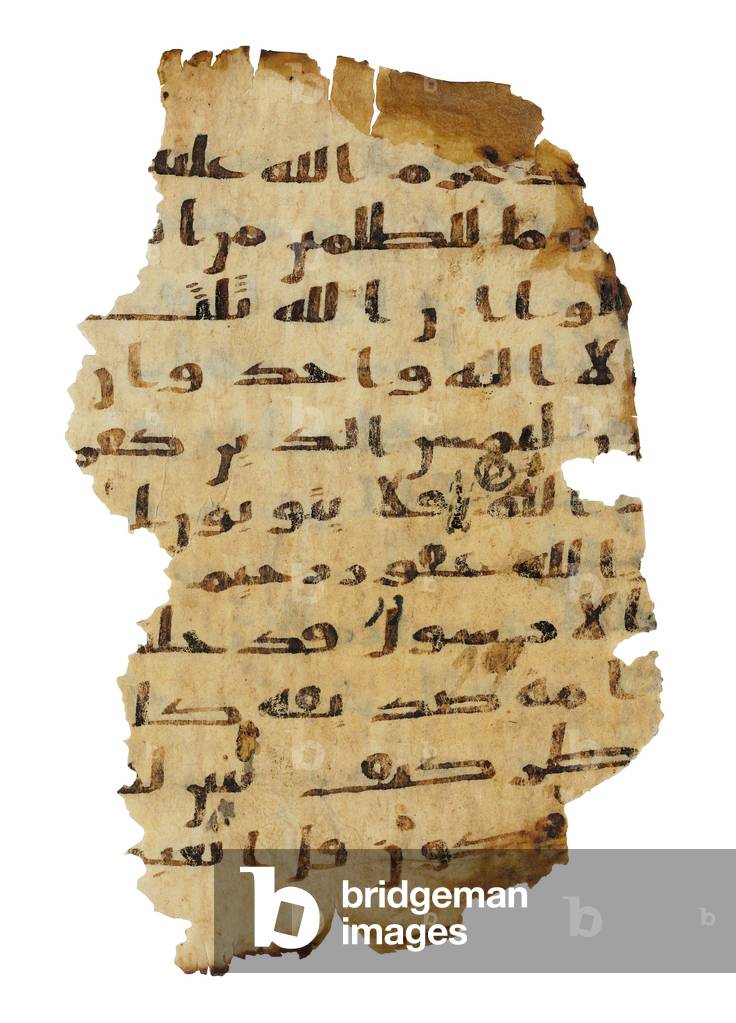 حرم الله علىه
وما للظلمين من ان
الوا ان الله ثلث
لا اله واحد وان
ليمسن الذين كفر
اليم افلا يتوبون ا
الله غفور رحيم
الا رسول قد خلت
امه صديقه كا
ظر كيف نبين ل
فكون قل اتعبد
bridgeman
images